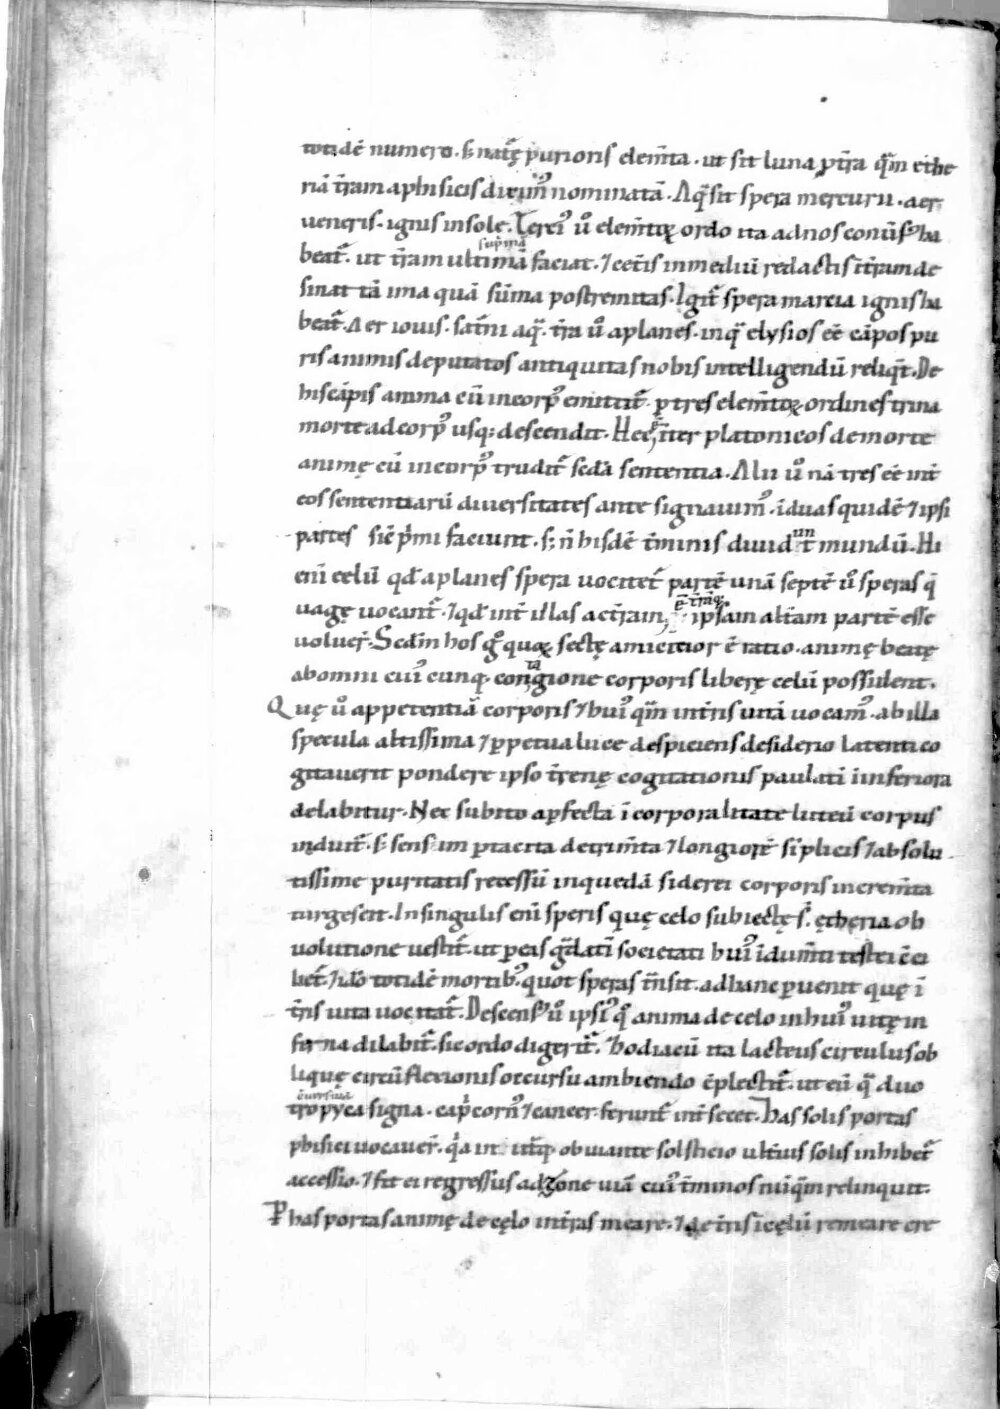 totidē numero. s; natę purioris elem̄ta. ut sit luna p̱ t̄ra quā ethe
riā t̄ram a phisicis diximꝰ nominatā. Aq̄ sit spera mercurii. aer
ueneris. ignis in sole. Tercıꝰ u̓o elem̄toꝝ ordo ita ad nos conũsꝰ ha
supͥmā
beat̃. ut t̄ram ultimā faciat. ⁊ cet̃is in mediū redactis ĩ t̄ram de
sinat tā ima quā sūma postremitas. Igit̃ spera marcia ignis ha
beat̃. Aer iouis. sat̃ni aq̄. t̄ra u̓o aplanes. in q̄ elysios eē cāpos pu
ris animis deputatos antiquitas nobis intelligendū reliq̄t. De
his cāpis anima cū in corpꝰ emittit̃. p̱ tres elem̄toꝝ ordines trina
morte ad corpꝰ usq; descendit. Hec ē int̃ platonicos de morte
animę cū in corpꝰ trudit̃ sc̄da sententia. Alii u̓o nā tres eē int̃
eos sententiarū diuersitates ante signauimꝰ. ī duas quidē ⁊ ipsi
partes sic̄ pͥmi faciunt. s; ñ hisdē t̃minis diuidunt mundū. Hi
enī celū qd̄ aplanes spera uocitet̃ partē unā septē u̓o speras q̄
ē t̄raq;
uagę uocant̃. ⁊ qd̄ int̃ illas ac t̄ram, ipsam alt̃am partē esse
uoluer̃. Scd̄m hos g̊ quoꝝ sectę amicitior ē ratio. animę beatę
ta
ab omni cuıꝰ cunq. congione corporis liberę celū possident.
Quę u̓o appetentiā corporis ⁊ huıꝰ quā in t̃ris uitā uocamꝰ. ab illa
specula altissima ⁊ p̱petua luce despiciens desiderio latenti co
gitauerit pondere ipso t̃renę cogitationis paulatī ī inferiora
delabitur. Nec subito a p̱fecta ī corporalitate luteū corpus
induit̃. s; sensim p̱ tacita detrim̄ta ⁊ longiorē sīplicis ⁊ absolu
tissime puritatis recessū in quedā siderei corporis increm̄ta
turgescit. In singulis enī speris quę celo subiectę s̄. ętheria ob
uolutione uestit̃. ut p̱ eas g̊datī societati huıꝰ īdum̄ti testei cc̄i
liet̃. ⁊ ido̓ totidē mortibꝰ quot speras t̄nsit. ad hanc p̱uenit quę ī
t̃ris uita uocitat̃. Descensꝰ u̓o ipsıꝰ q̊ anima de celo in huıꝰ uitę in
ferna dilabit̃. sic ordo digerit̃. Zodiacū ita lacteus circulus ob
liquę circū flexionis occursu ambiendo c̄plectit̃. ut eū q̄ duo
c̄uersiua
tropyca signa. capͥcornꝰ ⁊ cancer ferunt̃ int̃secet. Has solis portas
phisici uocauer̃. qͥa in ut̃q; obuiante solsticio ult̃ius solis inhibet̃
accessio. ⁊ fit ei regressus ad zone uiā cuıꝰ t̃minos nūquā relinquit.
P̱ has portas animę de cęlo in t̃ras meare. ⁊ de t̃ris ī cęlū remeare cre